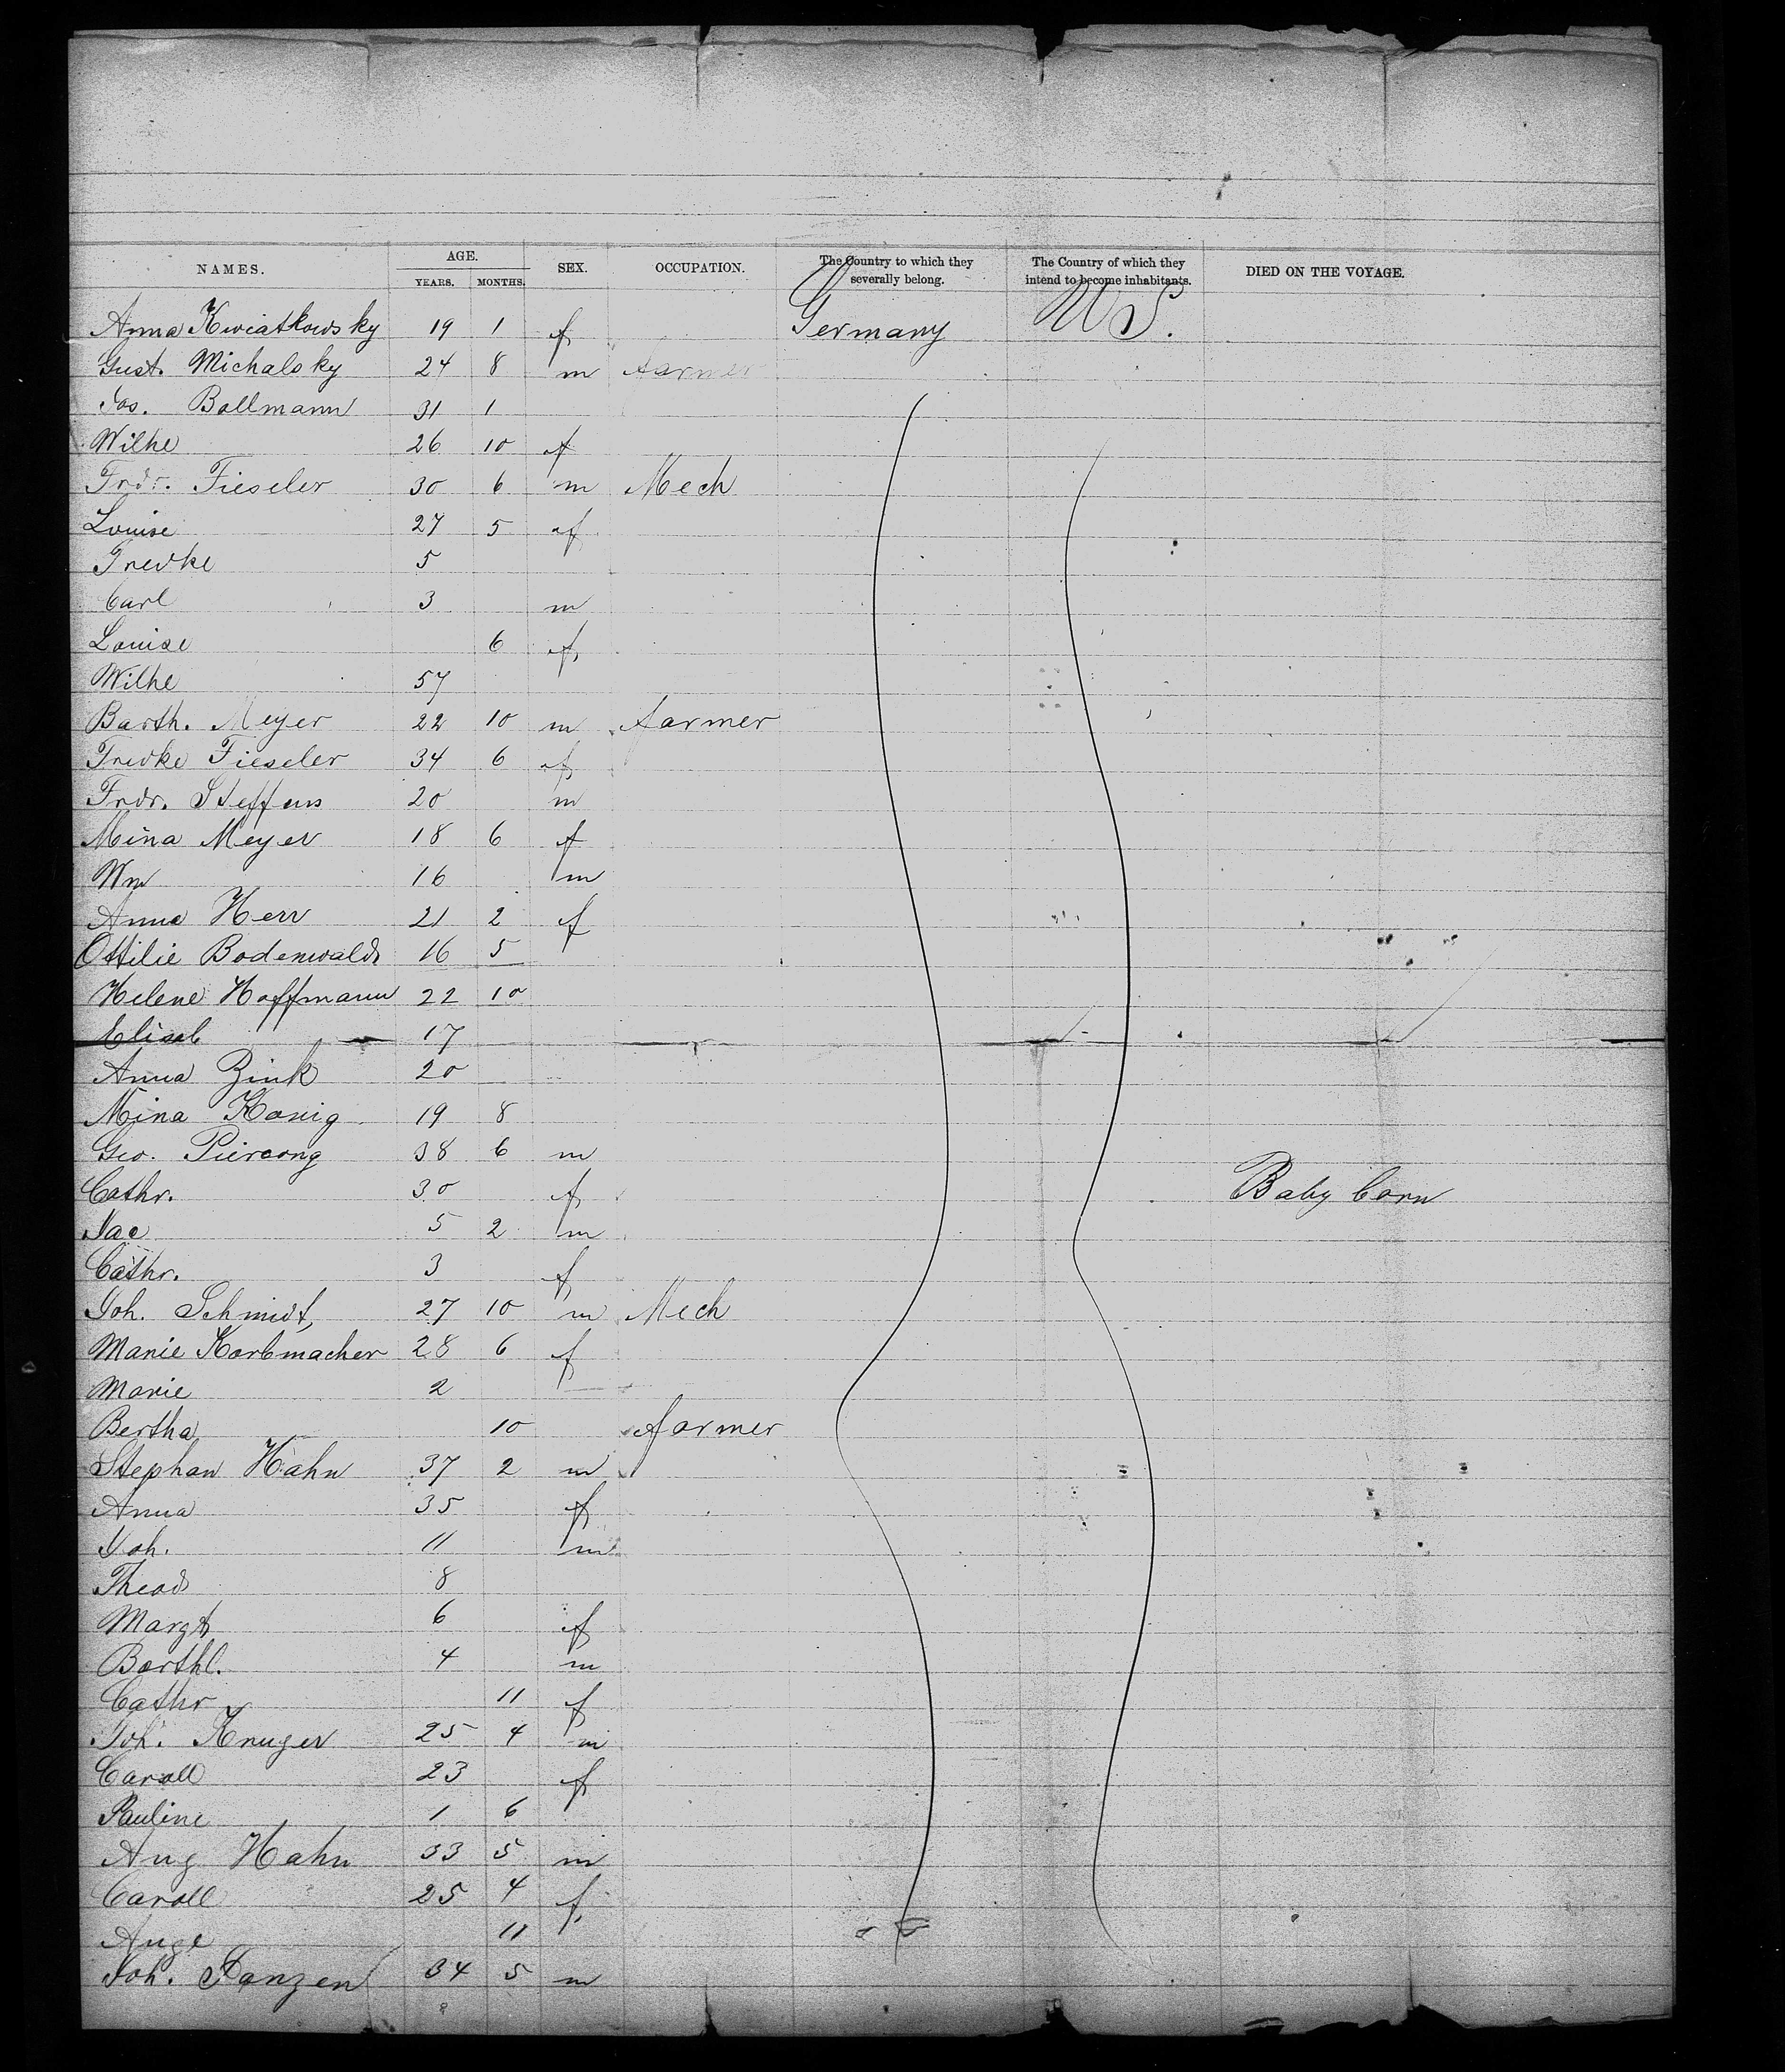 NAMES. AGE. YEARS. MONTHS. SEX. OCCUPATION. The Country to which they severally belong. The Country of which they intend to become inhabitants. DIED ON THE VOYAGE.
Anna Kwiatkowsky 19 1 f Germany U S.
Gust. Michalsky 24 8 m farmer
Jos. Bollmann 31 1
Wilhe 26 10 f
Frdr. Fieseler 30 6 m Mech
Louise 27 5 f
Fredke 5
Carl 3 m
Louise 6 f
Wilhe 57
Barth. Meyer 22 10 m farmer
Fredke Fieseler 34 6 f
Frdr. Steffens 20 m
Mina Meyer 18 6 f
Wm 16 m
Anna Herr 21 2 f
Ottilie Bodenwald 16 5
Helene Hoffmann 22 10
Elisab 17
Anna Zink 20
Mina Konig 19 8
Geo. 38 6 m
Cathr. 30 f Baby born
Jac 5 2 m
Cathr. 3 f
Joh. Schmidt, 27 10 m Mech
Marie Korbmacher 28 6 f
Marie 2
Bertha 10 farmer
Stephan Hahn 37 2 m
Anna 35 f
Joh. 11 m
Theod 8
Margt 6 f
Barthl. 4 m
Cathr 11 f
Joh. Kruger 25 4 m
Caroll 23 f
Pauline 1 6
Aug Hahn 33 5 m
Caroll 25 4 f
Auge 11
Joh. Janzen 34 5 m